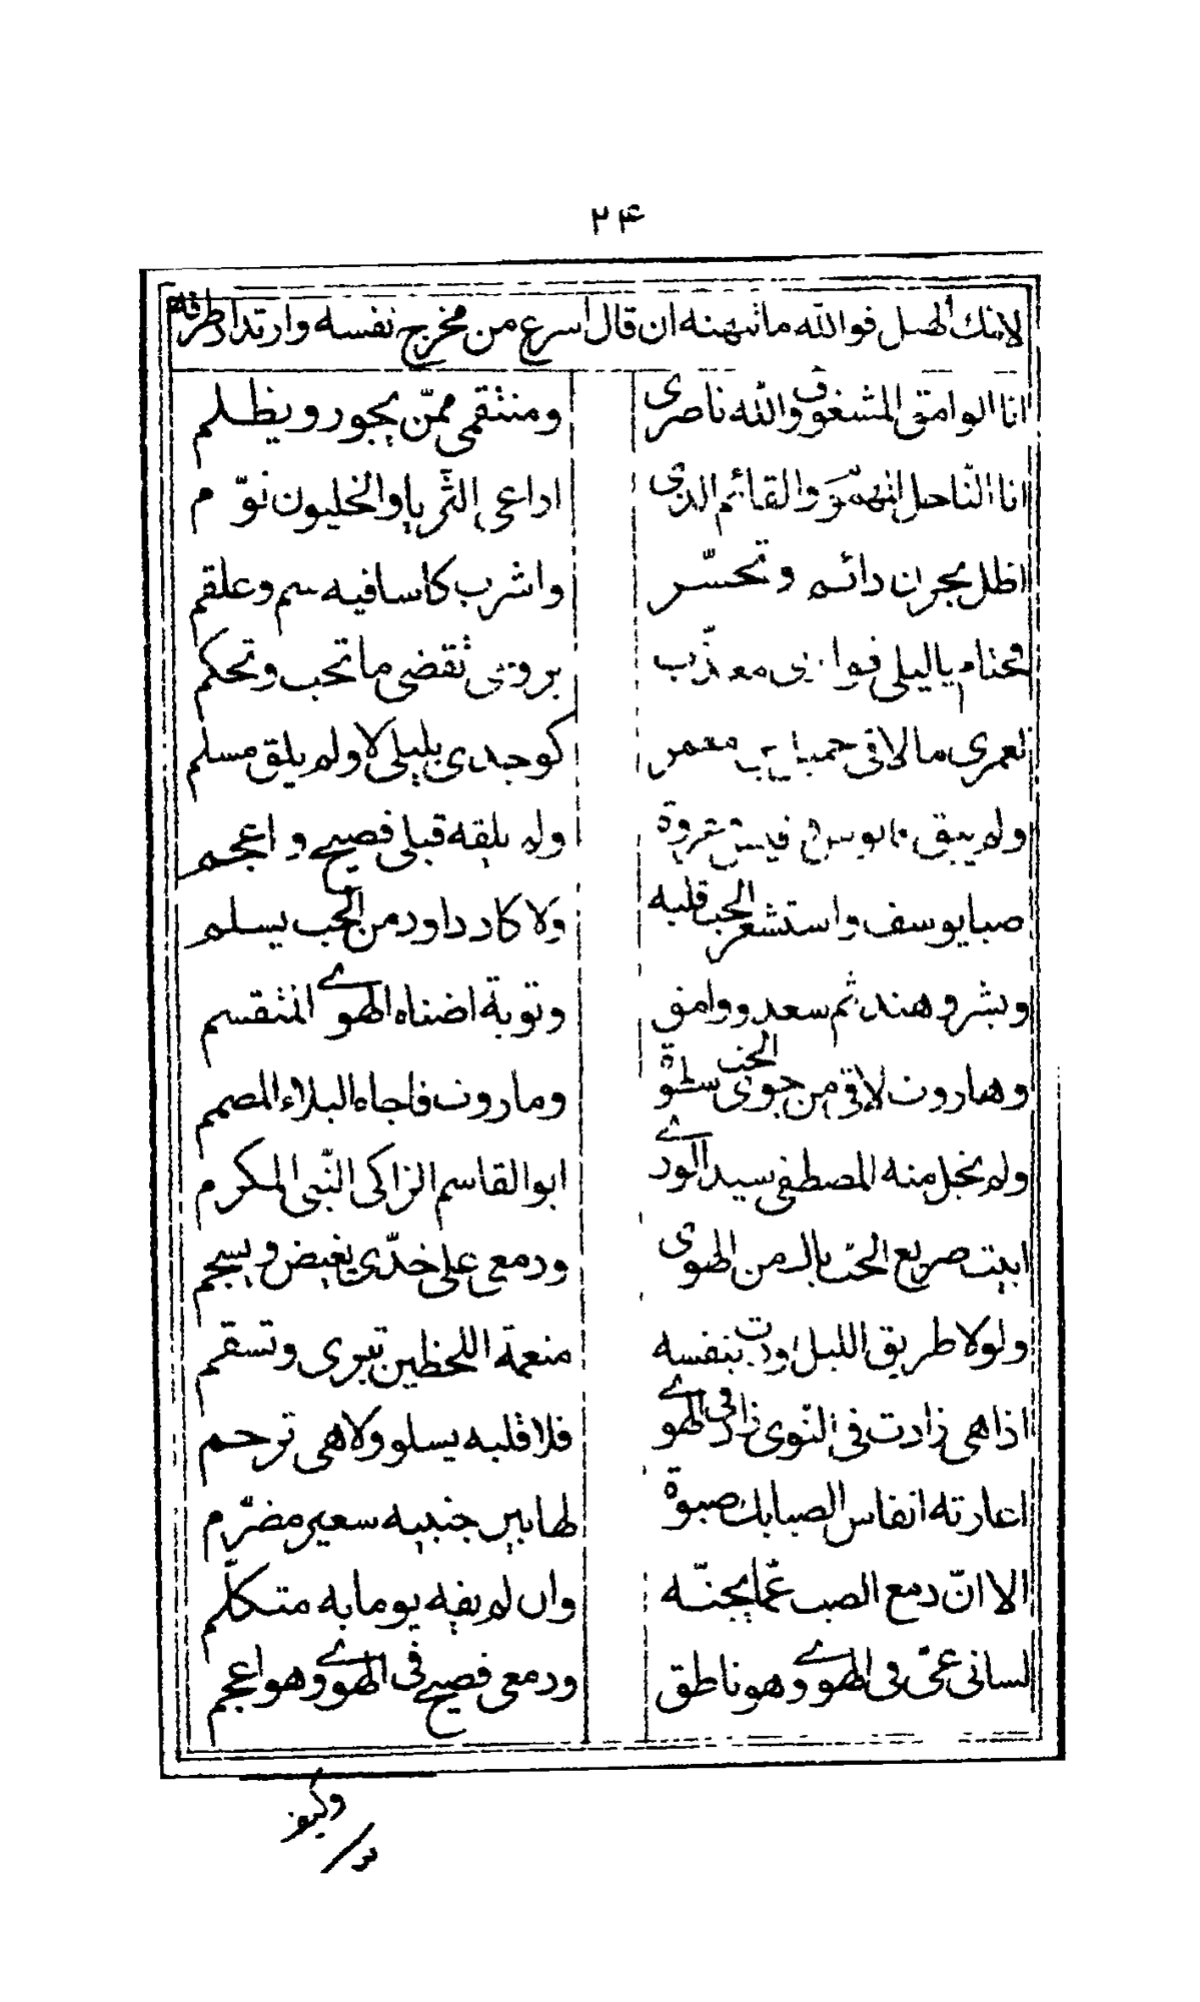 ٢۴
لانك أهل فوالله ما نبهنه ان قال اسرع من مخرج نفسه وارتداد طرفه
انا الوامق المشغوف والله ناصرى ومنتقمى ممّن يجور ويظلم
انا النّاحل المهموم والقائم الذى اداعى الثّريا والخليون نوّم
اظل بحزن دائم وتحسّر واشرب كاسا فيه سم وعلقم
فحتام ياليلى فوادى معذّب بروحى تقضى ما تحب وتحكم
لعمرى ما لاقى جميل معمر كوجدى بليلى لا ولم يلق مسلم
ولم يبق قابوس قيس عروة ولم يلقه قبلى فصيح واعجم
صبا يوسف واستشعر الحب قلبه ولا كاد داود من الحب يسلم
وبشر وهند ثم سعد ووامق وتوبة اضناه الهوے المتقسم
وهارون لاقى من جوى الحب سطوة ومارون فاجاه البلاء المصمم
ولم يخل منه المصطفى سيد الورے ابو القاسم الزاكى النّبى المكرم
ابيت صريع الحبّ بال من الهوى ودمعى على خدّى يفيض ويسجم
ولولا طريق الليل اودت بنفسه منعمة اللحظين تبرى وتسقم
اذا هى زادت فى النّوى زاد فى الهوے فلا قلبه يسلو ولا هى ترحم
اعارته انفاس الصبا بك صبوة لها بين جنبيه سعير مضرّم
الا انّ دمع الصب عمّا يجنّه وان لم يفه يوما به متكلّم
لسانى عىّ فى الهوے وهو ناطق ودمعى فصيح فى الهوے وهو اعجم